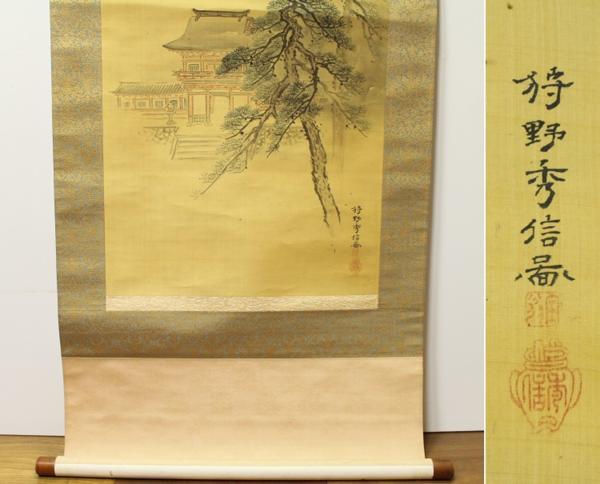 狩野秀信圖
狩野秀信圖